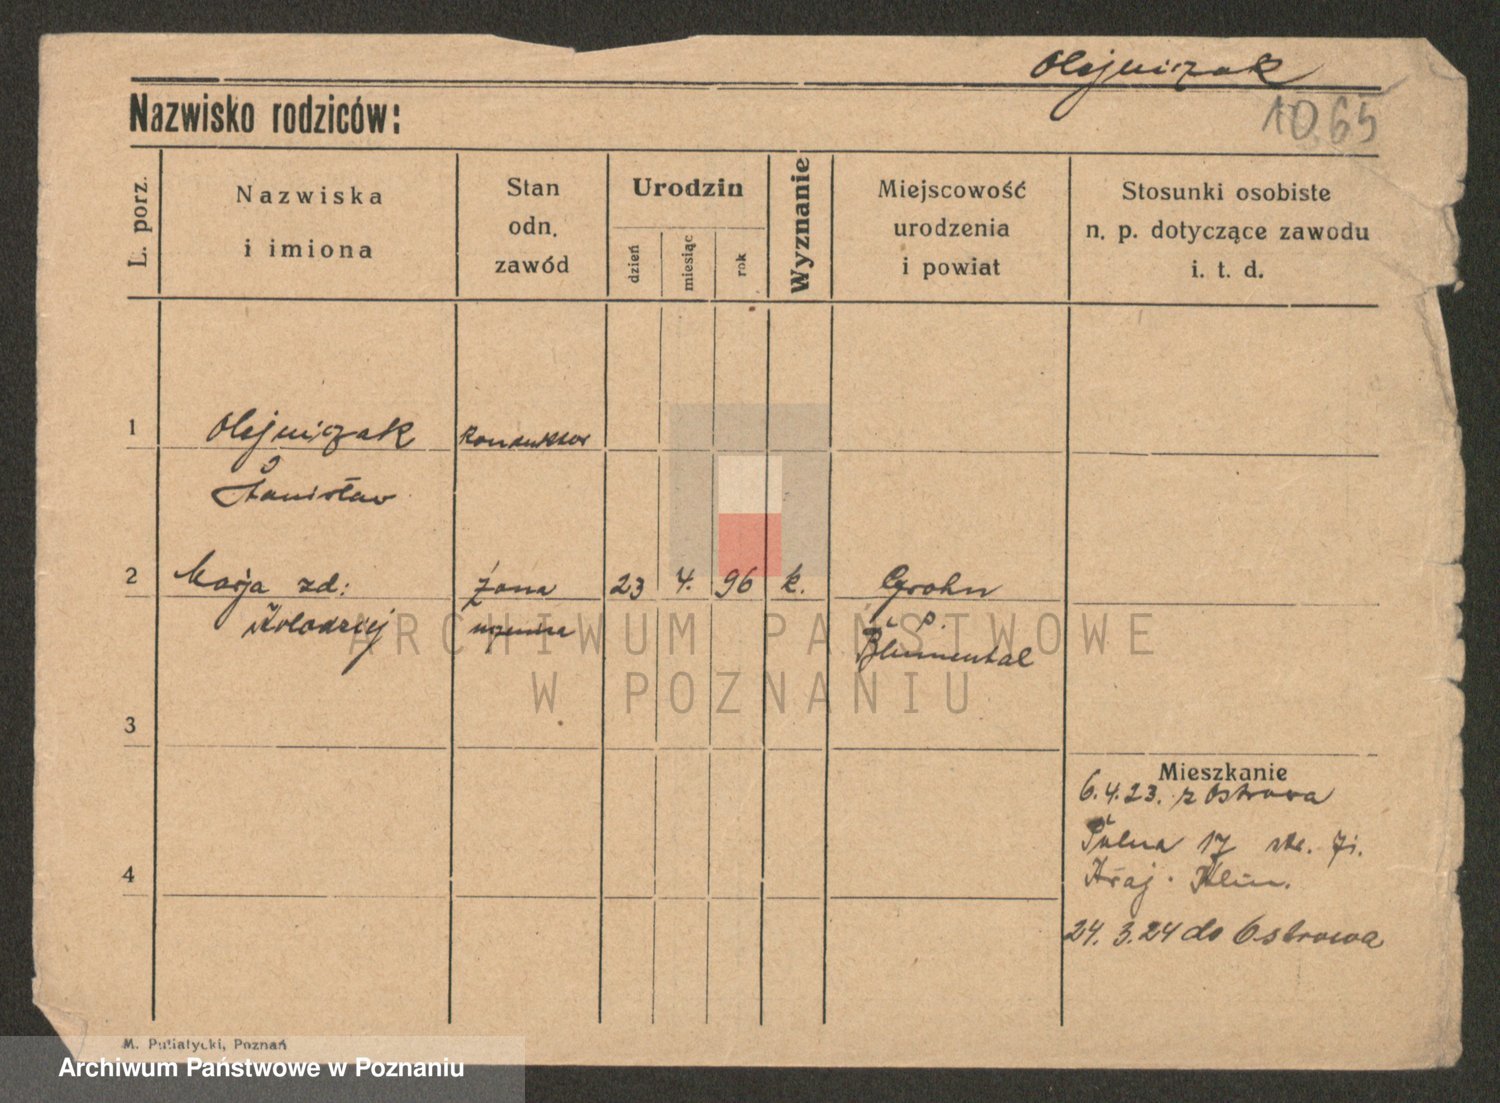 Olejniczak
Nazwisko rodziców:
1065
L. porz.
Nazwiska
i imiona
Stan
odn.
zawód
Urodzin
dzień
miesiąc
rok
Wyznanie
Miejscowość
urodzenia
i powiat
Stosunki osobiste
n. p. dotyczące zawodu
i. t. d.
1 Olejniczak konduktor
Stanisław
2 Marja zd: żona 23 4. 96 k. Grohn
Kołodziej p.
Blumental
ARCHIWUM PAŃSTWOWE
W POZNANIU
3
Mieszkanie
6.4.23. z Ostrowa
Polna 17
4
24.3.24 do Ostrowa
M. Putiatycki, Poznań
Archiwum Państwowe w Poznaniu